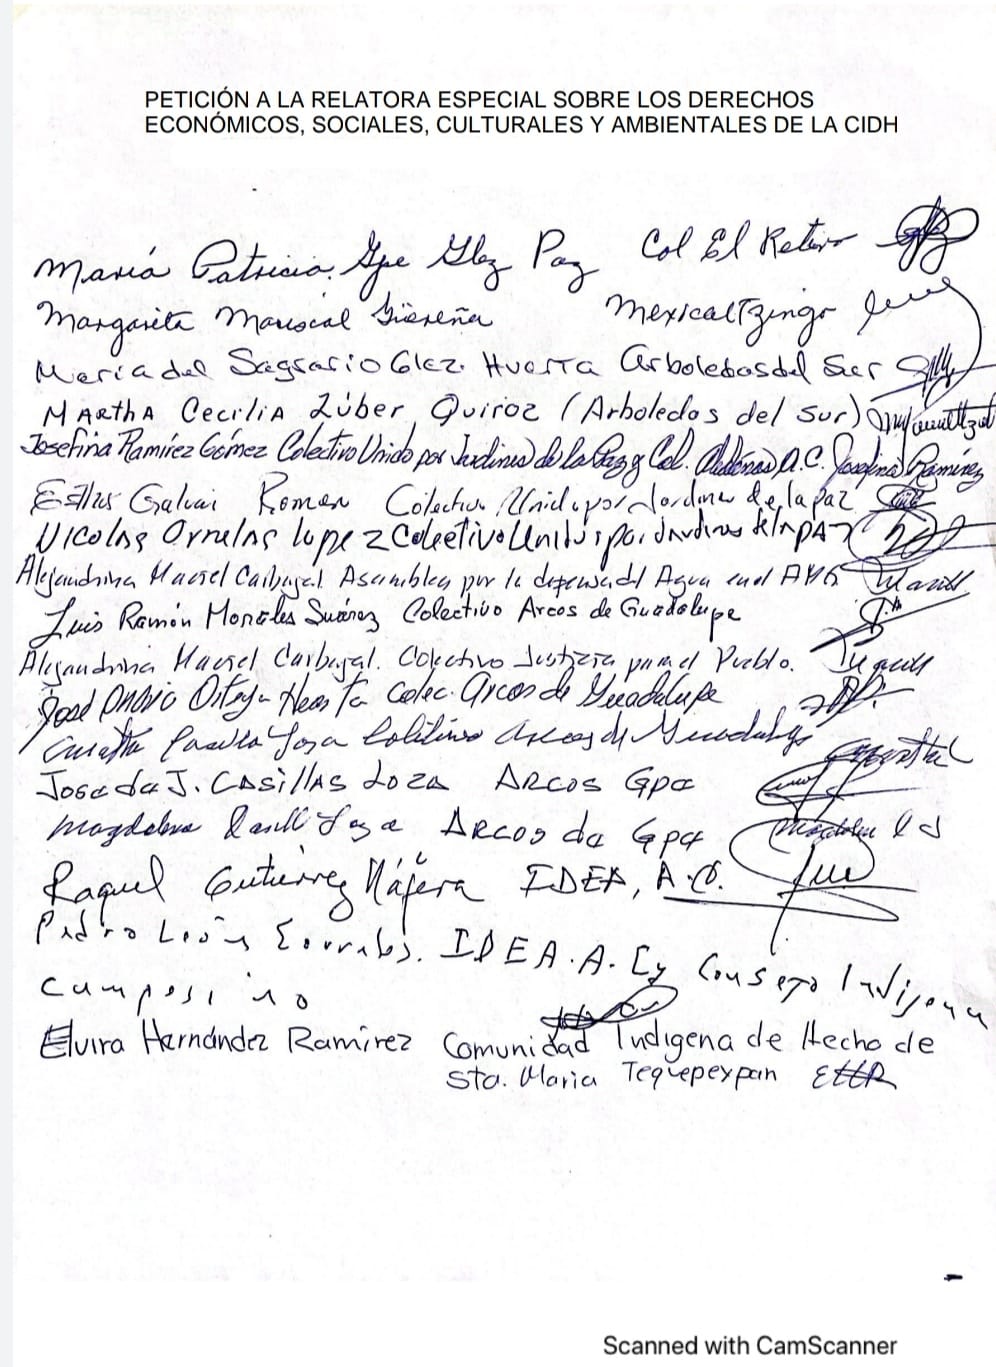 PETICIÓN A LA RELATORA ESPECIAL SOBRE LOS DERECHOS
ECONÓMICOS, SOCIALES, CULTURALES Y AMBIENTALES DE LA CIDH
María Patricia Gpe Glez Paz Col El Retiro
Margarita Mariscal Mexicaltzingo
María del Sagrario Glez. Huerta Arboledas del Sur
MArthA CeciliA Zúber Quiroz (Arboledas del Sur)
Josefina Ramírez Gómez Colectivo Unido por Jardines de la Paz y Col. A.C. Josefina Ramírez
Galvan Roman Colectivo Unido por Jardines de la paz
Nicolas Ornelas lopez Colectivo Unidos por Jardines de lA pAz
Alejandrina Maciel Carbajal Asamblea por la defensa del Agua en el AMG
Luis Ramón Morales Suárez Colectivo Arcos de Guadalupe
Alejandrina Maciel Carbajal. Colectivo Justicia para el Pueblo.
José Ortega Colec. Arcos de Guadalupe
Loza Arcos de Guadalupe
José de J. CASillAS LOZA ARCOS Gpe
Magdalena Loza ARCOS de Gpe
Raquel Gutiérrez Nájera IDEA, A.C.
Pedro León Corrales. IDEA. A. C y Consejo Indigena
Campesino
Elvira Hernández Ramírez Comunidad Indigena de Hecho de
Sta. Maria Tequepexpan EHR
Scanned with CamScanner